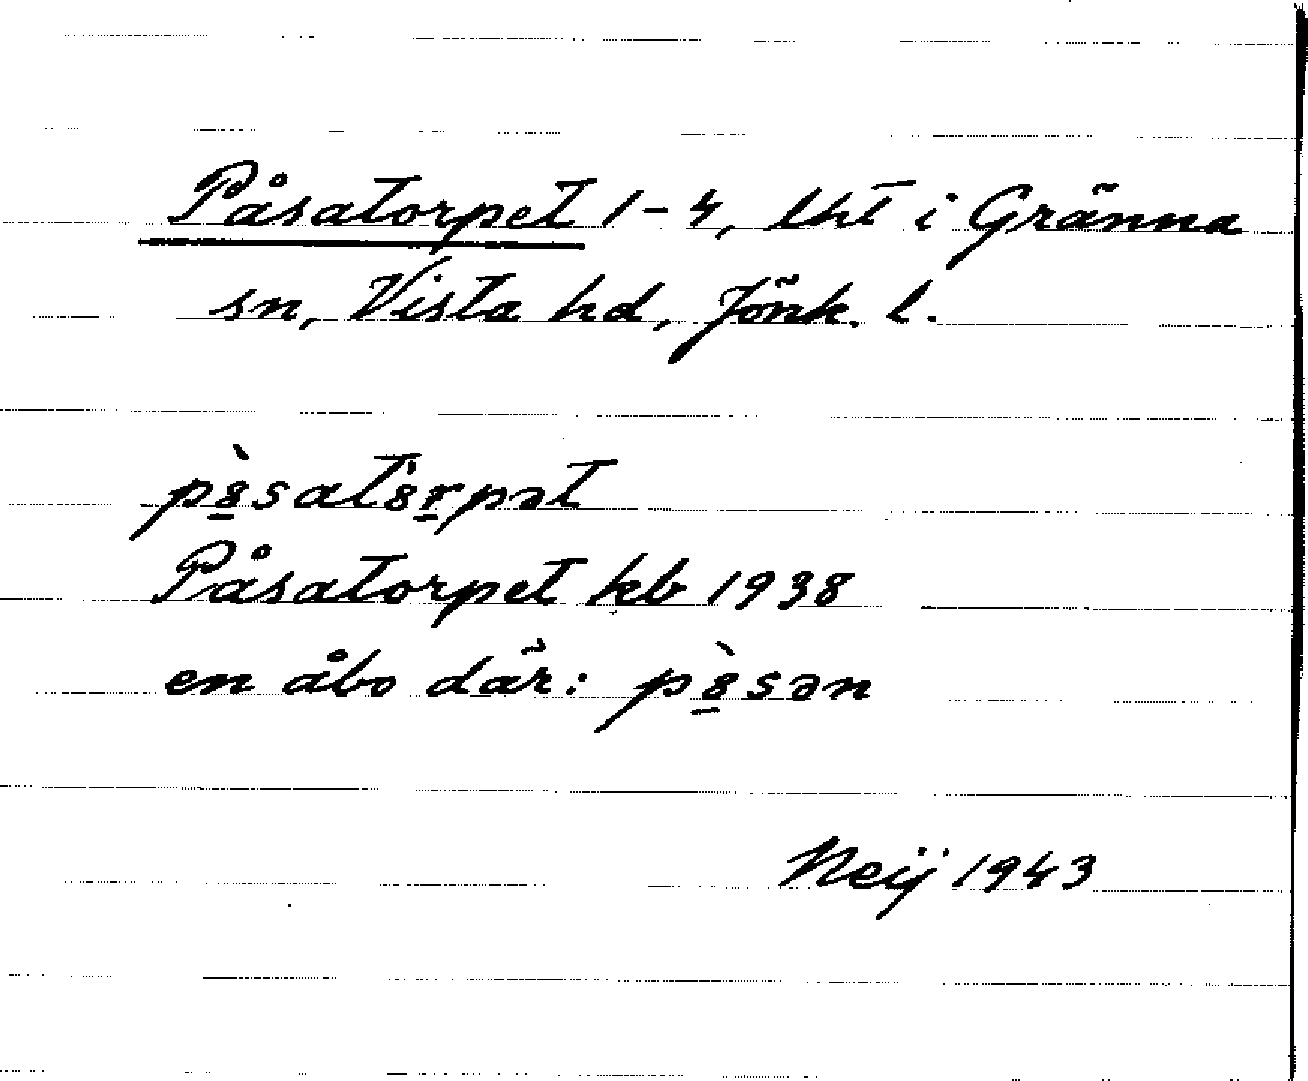 Påsatorpet 1-4, lht i Gränna
sn, Vista hd, Jönk. l.
pò̱satòṟpət
Påsatorpet kb 1938
en åbo där: pò̱sən
Neij 1943